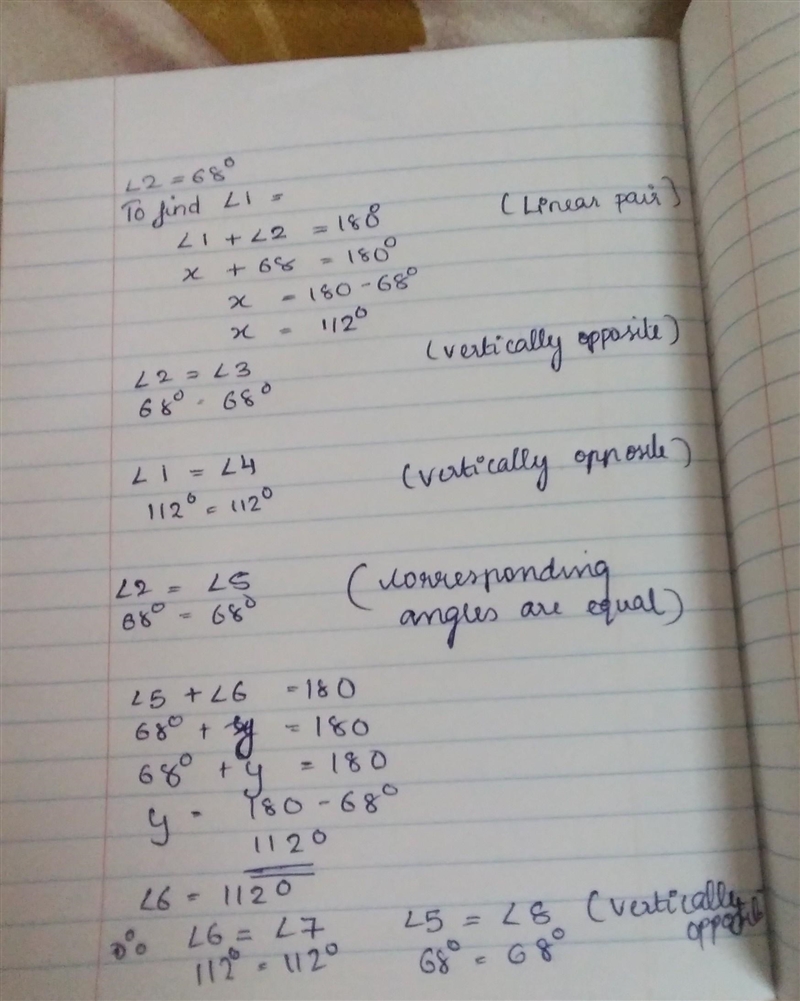 ∠2 = 68°
To find ∠1 =
∠1 + ∠2 = 180° (Linear pair)
x + 68 = 180°
x = 180 - 68°
x = 112°
∠2 = ∠3 (vertically opposite)
68° = 68°
∠1 = ∠4 (vertically opposite)
112° = 112°
∠2 = ∠5 (corresponding
68° = 68° angles are equal)
∠5 + ∠6 = 180
68° + y = 180
68° + y = 180
y = 180 - 68°
112°
∠6 = 112°
∠6 = ∠7 ∠5 = ∠8 (vertically
112° = 112° 68° = 68° opposite